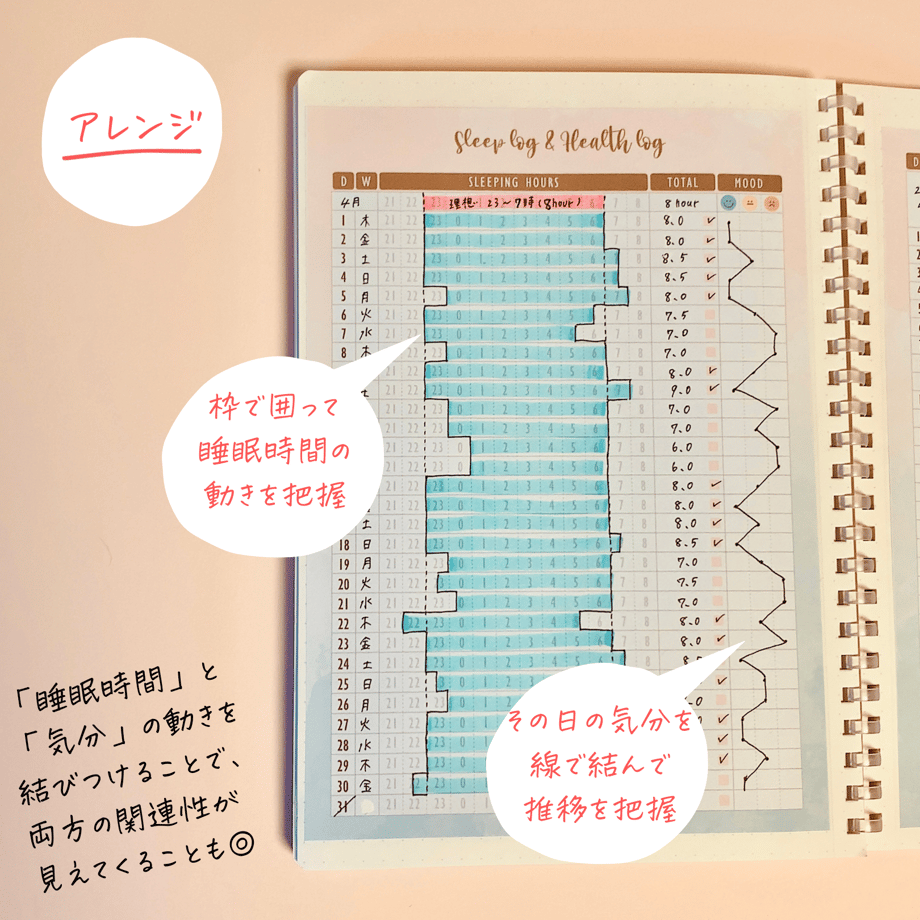 アレンジ
Sleep log & Health log
D W SLEEPING HOURS TOTAL MOOD
4月 21 22 23 理想 23〜7時(8hour) 6 7 8 8hour
1 木 21 22 23 0 1 2 3 4 5 6 7 8 8.0 ✓
2 金 21 22 23 0 1 2 3 4 5 6 7 8 8.0 ✓
3 土 21 22 23 0 1 2 3 4 5 6 7 8 8.5 ✓
4 日 21 22 23 0 1 2 3 4 5 6 7 8 8.5 ✓
5 月 21 22 23 0 1 2 3 4 5 6 7 8 8.0 ✓
6 火 21 22 23 0 1 2 3 4 5 6 7 8 7.5
7 水 21 22 23 0 1 2 3 4 5 6 7 8 7.0
8 木 21 22 23 0 1 2 3 4 5 6 7 8 7.0
23 0 1 2 3 4 5 6 7 8 8.0 ✓
土 23 0 1 2 3 4 5 6 7 8 9.0 ✓
23 0 1 2 3 4 5 6 7 8 7.0
23 0 1 2 3 4 5 6 7 8 7.0
23 0 1 2 3 4 5 6 7 8 6.0
23 0 1 2 3 4 5 6 7 8 6.0
23 0 1 2 3 4 5 6 7 8 8.0 ✓
23 0 1 2 3 4 5 6 7 8 8.0 ✓
土 21 22 23 0 1 2 3 4 5 6 7 8 8.0 ✓
18 日 21 22 23 0 1 2 3 4 5 6 7 8 8.5 ✓
19 月 21 22 23 0 1 2 3 4 5 6 7 8 7.0
20 火 21 22 23 0 1 2 3 4 5 6 7 8 7.5
21 水 21 22 23 0 1 2 3 4 5 6 7 8 7.0
22 木 21 22 23 0 1 2 3 4 5 6 7 8 8.0 ✓
23 金 21 22 23 0 1 2 3 4 5 6 7 8 8.0 ✓
24 土 21 22 23 0 1 2 3 4 5 6 7 8 8.5
25 日 21 22 23 0 1 2 3 ✓
26 月 21 22 23 0 1 2 3
27 火 21 22 23 0 1 2 ✓
28 水 21 22 23 0 1 2 ✓
29 木 21 22 23 0 1 2 ✓
30 金 21 22 23 0 1 2
31 21 22 23 0 1 2
枠で囲って
睡眠時間の
動きを把握
その日の気分を
線で結んで
推移を把握
「睡眠時間」と
「気分」の動きを
結びつけることで、
両方の関連性が
見えてくることも◎